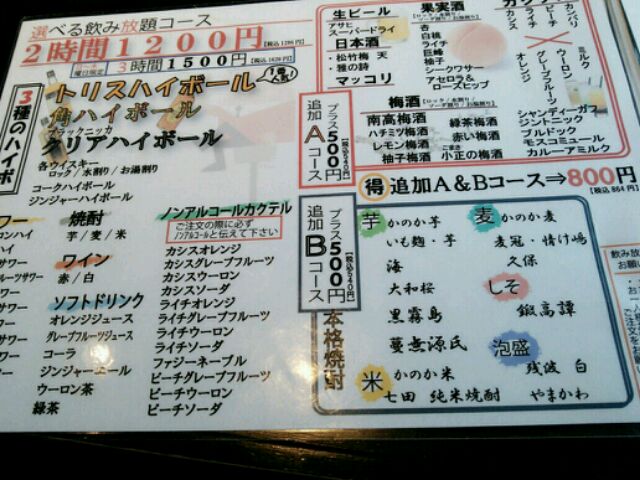 選べる飲み放題コース
2時間1200円【税込1296円】
曜日限定 3時間1500円【税込1620円】
3種のハイボ
トリスハイボール
1番人気!
角ハイボール
ブラックニッカ
クリアハイボール
各ウイスキー
ロック/水割り/お湯割り
コークハイボール
ジンジャーハイボール
焼酎
芋/麦/米
ワイン
赤/白
ソフトドリンク
オレンジジュース
グレープフルーツジュース
コーラ
ジンジャーエール
ウーロン茶
緑茶
ノンアルコールカクテル
ご注文の際に必ず
ノンアルコールと伝えて下さい
カシスオレンジ
カシスグレープフルーツ
カシスウーロン
カシスソーダ
ライチオレンジ
ライチグレープフルーツ
ライチウーロン
ライチソーダ
ファジーネーブル
ピーチグレープフルーツ
ピーチウーロン
ピーチソーダ
追加Aコース
プラス500円【税込540円】
生ビール
アサヒ
スーパードライ
日本酒
・松竹梅 天
・雅の詩
マッコリ
果実酒
杏
白桃
ライチ
巨峰
柚子
シークワサー
アセロラ&
ローズヒップ
梅酒【ロック/水割り/ソーダ割り/お湯割り】
南高梅酒
ハチミツ梅酒
レモン梅酒
柚子梅酒
緑茶梅酒
赤い梅酒
小正の梅酒
カシス
ライチ
ピーチ
カンパリ
×
オレンジ
グレープフルーツ
ウーロン
ミルク
ソーダ
シャンディーガフ
ジントニック
ブルドック
モスコミュール
カルーアミルク
得 追加A&Bコース⇒800円
【税込864円】
追加Bコース
プラス500円【税込540円】
本格焼酎
芋 かのか芋
いも麹・芋
海
大和桜
黒霧島
蔓無源氏
米 かのか米
七田 純米焼酎
麦 かのか麦
麦冠・情け嶋
久保
しそ
鍛高譚
泡盛
残波 白
やまかわ
飲み放
お願い